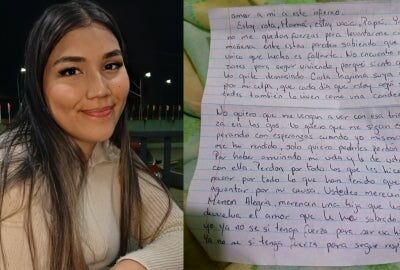 amor a mi a este infierno.
Estoy rota, Mamá, estoy vacía, Papá. Ya
no me quedan fuerzas para levantarme cada
mañana entre estas paredes sabiendo que
único que hecho es fallarte. No encuentro
zones para seguir viviendo, porque siento q
les quite demasiado. Cada lagrima suya
por mi culpa, que cada día que estoy aquí
ustedes también lo viven como una condena
No quiero que me vuelvan a ver con esa tris
za en los ojos. No quiero que me sigan es
perando con esperanzas cuando yo misma
me ha rendido, solo quiero pedirles perdón
Por haber arruinado mi vida y la de ustedes
con ella. Perdón por todo lo que les hice
pasar por todo lo que han tenido que
aguantar por mi causa. Ustedes merecen
Merecen Alegria, merecen una hija que les
devuelva el amor que le ha sobrado.
yo, ya no se si tenga fuerza para ser esa hija
Ya no se si tenga fuerza para seguir resp